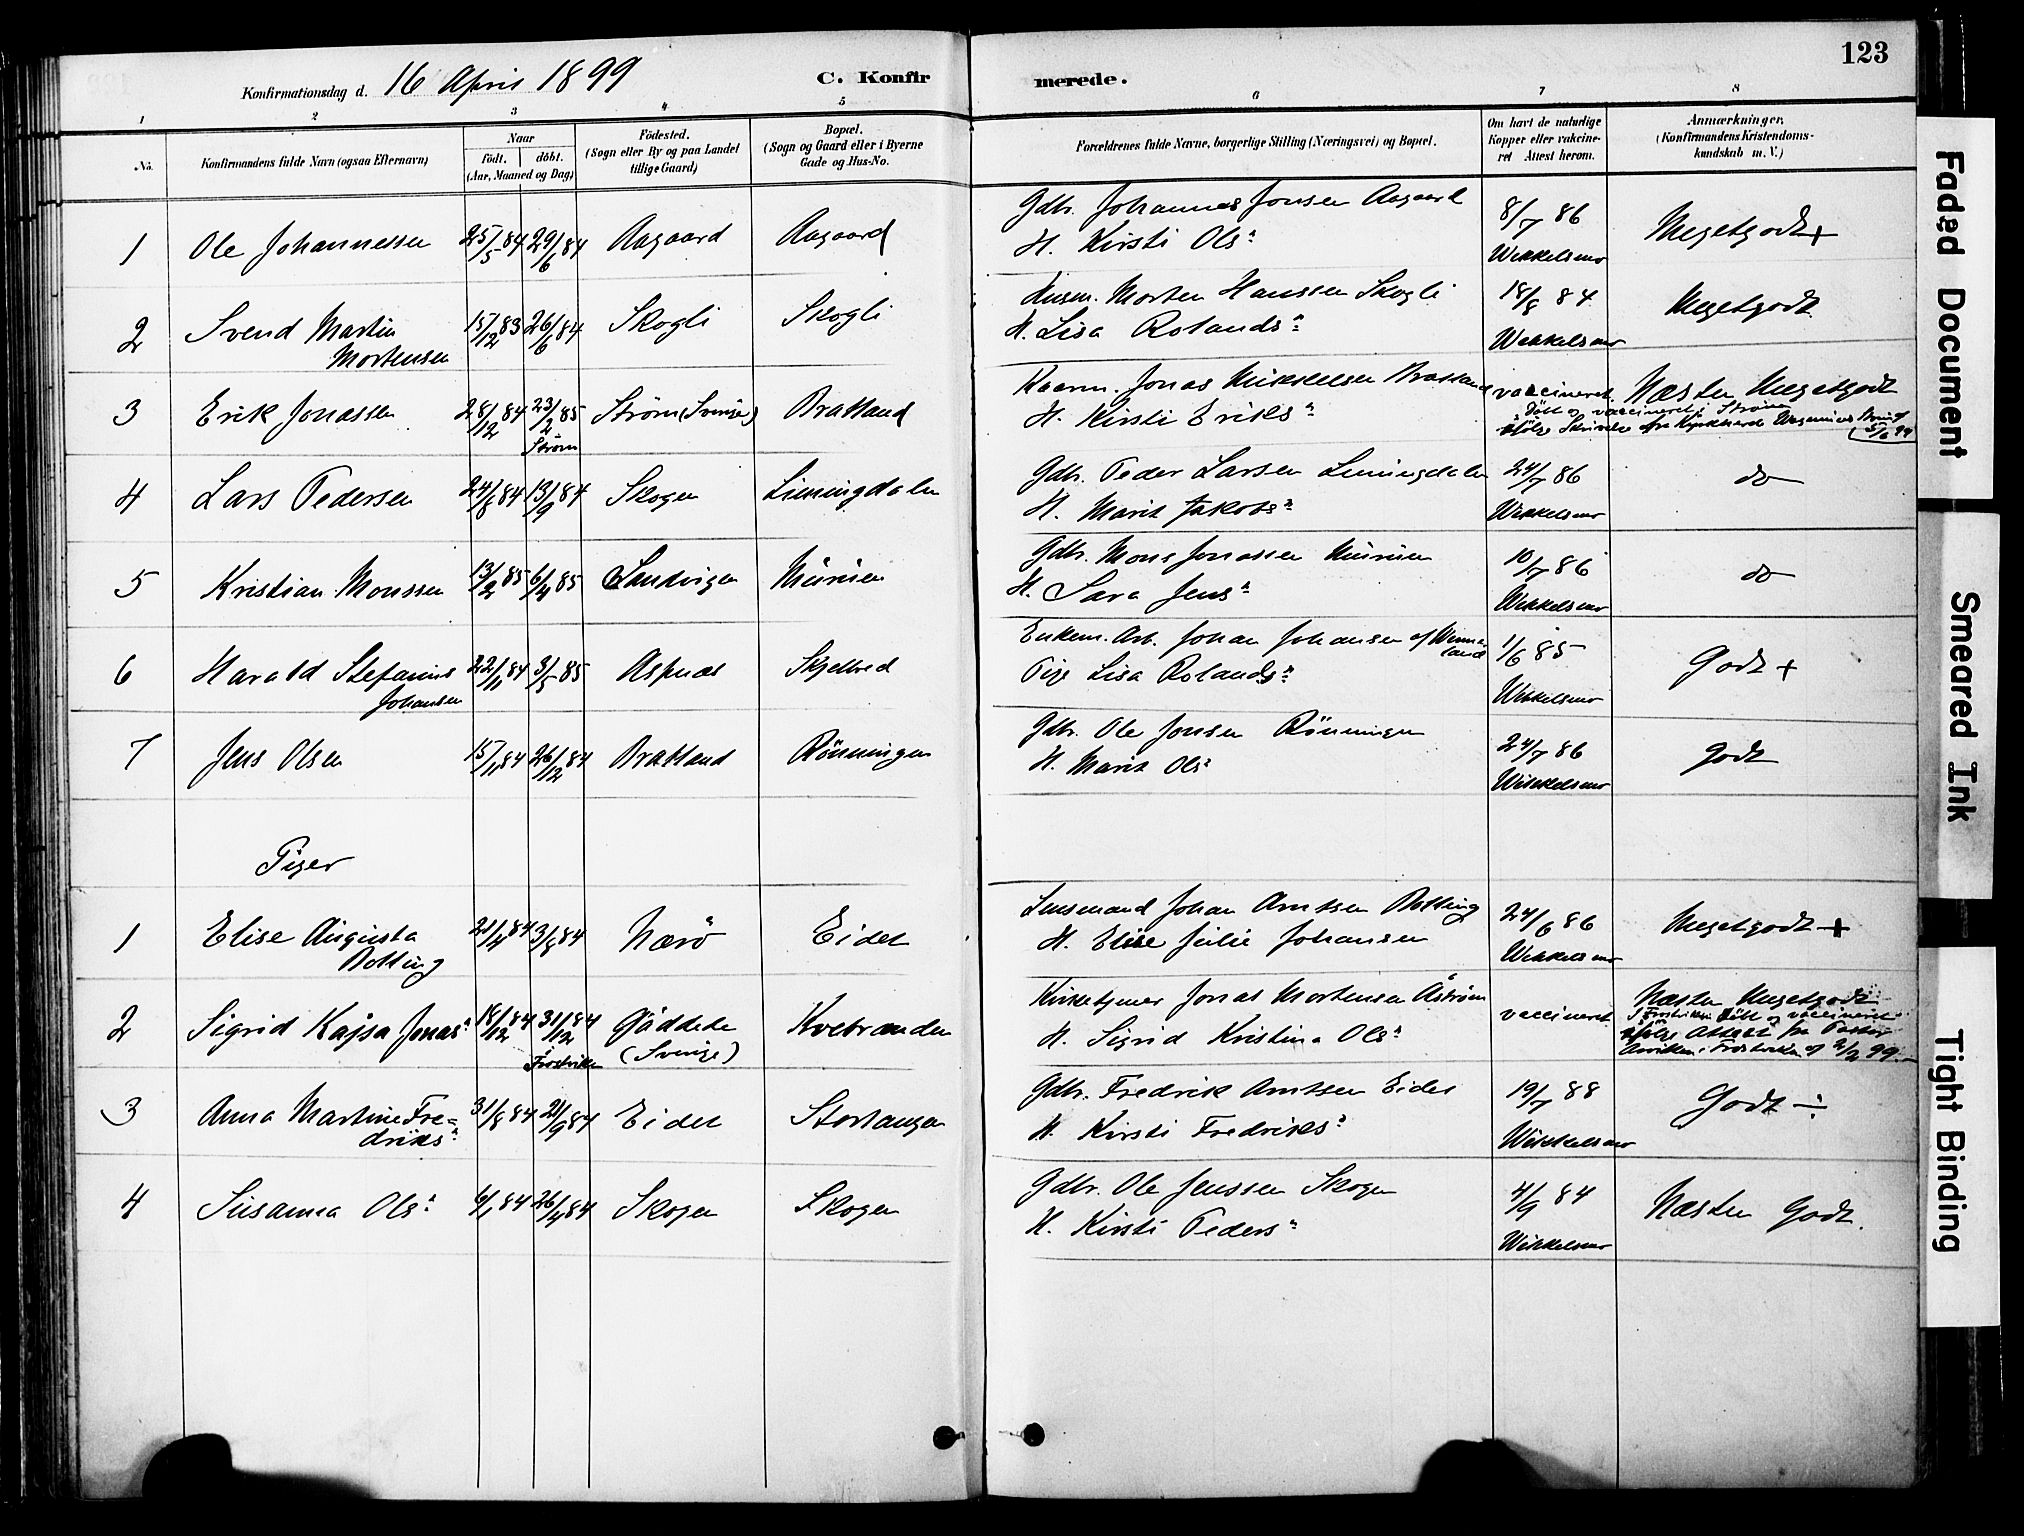 123
Konfirmationsdag d. 16 April 1899
C. Konfirmerede.
1 2 3 4 5 6 7 8
No.
Konfirmandens fulde Navn (ogsaa Efternavn)
Naar
født. døbt.
(Aar, Maaned og Dag)
Fødested.
(Sogn eller By og paa Landet
tillige Gaard)
Bopæl.
(Sogn og Gaard eller i Byerne
Gade og Hus-No.
Forældrenes fulde Navne, borgerlige Stilling (Næringsvei) og Bopæl.
Om havt de naturlige
Kopper eller vakcine-
ret Attest herom.
Anmærkninger,
(Konfirmandens Kristendoms-
kundskab m. V.)
1 Ole Johannessen 25/5 84 29/6 84 Aagaard Aagaard Gdbr. Johannes Jonsen Aagaard 8/7 86 Megetgodt +
H. Kirsti Ols: Wekkelsmo
2 Svend Martin 15/12 83 26/6 84 Skogli Skogli Husm. Morten Hanssen Skogli 18/8 84 Megetgodt
Mortensen H. Lisa Rolands: Wekkelsmo
3 Erik Jonassen 28/12 84 23/2 85 Strøm (Sverige) Brattland Jonas Mikkelsen Brattland vaccineret. Næsten Megetgodt
Strøm H. Kirsti Eriks: født og vaccineret i Strøm
ifølge Skrivelse fra Kyrkherde
4 Lars Pedersen 24/8 84 13/9 84 Skogen Limingdalen Gdbr. Peder Larsen Limingdalen 24/7 86 do
H. Marit Jakobs: Wekkelsmo
5 Kristian Monssen 13/2 85 6/4 85 Sandvigen Murusen Gdbr. Mons Jonassen 10/7 86 do
H. Sara Jens: Wekkelsmo
6 Harald Stefanus 22/11 84 3/5 85 Aspnæs Skjelbred Enkem. Arb. Johan Johansen af 1/6 85 Godt +
Johansen Pige Lisa Rolands: Wekkelsmo
7 Jens Olsen 15/11 84 26/12 84 Brattland Rønningen Gdbr. Ole Jonsen Rønningen 24/7 86 Godt
H. Marit Ols: Wekkelsmo
Piger
1 Elise Augusta 3/8 84 Nærø Eidet Lensmand Johan Arntsen Dotting 24/6 86 Megetgodt +
H. Elise Julie Johansen Wekkelsmo
2 Sigrid Kajsa Jonas: 18/12 84 31/12 84 Gäddede Kvebranden Kirketjener Jonas Mortensen Åstrøm vaccineret. Næsten Megetgodt
Frostviken (Sverige) H. Sigrid Kristina Ols: i Frostviken født og vaccineret
ifølge Attest fra Pastor
i Frostviken af 2/2 99.
3 Anna Martine Fre= 31/8 84 21/9 84 Eidet Storhaugen Gdbr. Fredrik Arntsen Eidet 19/7 88 Godt ÷
driks: H. Kirsti Fredriks: Wekkelsmo
4 Susanna Ols: 6/1 84 26/4 84 Skogen Skogen Gdbr. Ole Jenssen Skogen 4/9 84 Næsten Godt.
H. Kirsti Peders: Wekkelsmo
Faded Document
Smeared Ink
Tight Binding